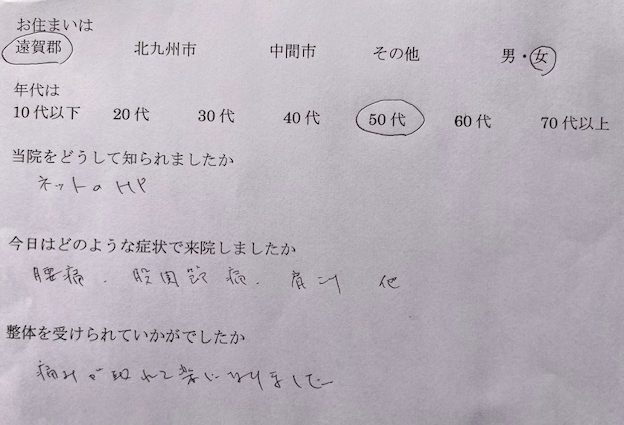 お住まいは
遠賀郡 北九州市 中間市 その他 男・女
年代は
10代以下 20代 30代 40代 50代 60代 70代以上
当院をどうして知られましたか
ネットのHP
今日はどのような症状で来院しましたか
腰痛、股関節痛、肩コリ 他
整体を受けられていかがでしたか
痛みが取れて楽になりました